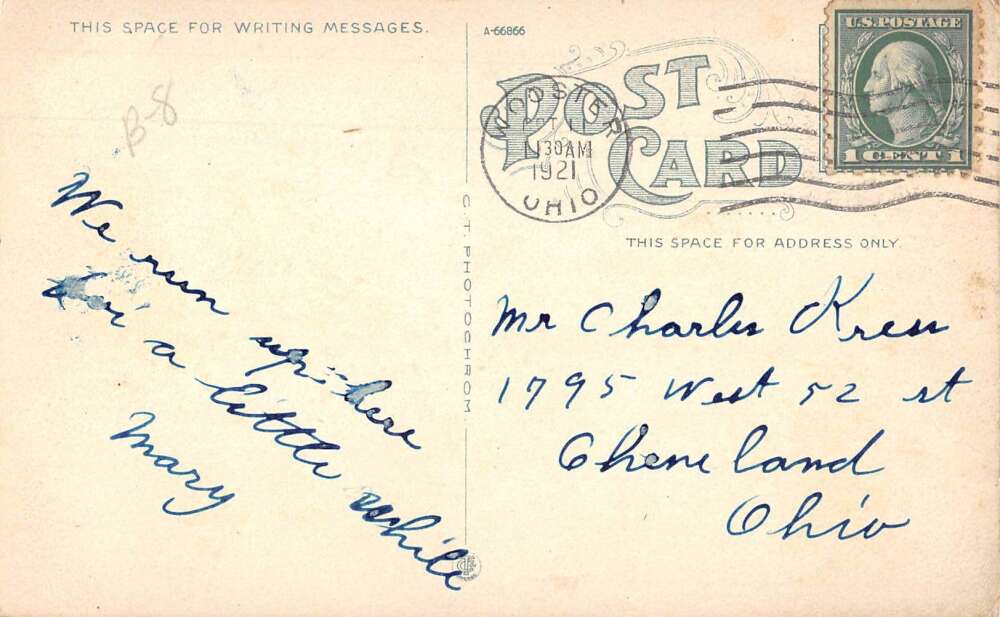 THIS SPACE FOR WRITING MESSAGES.
B-8
We run up-here
for a little while
Mary
C.T. PHOTOCHROM
A-66866
POST CARD
WOOSTER
11 30 AM
1921
OHIO
U.S. POSTAGE
1 1
THIS SPACE FOR ADDRESS ONLY.
Mr Charles Kress
1795 West 52 st
Cheveland
Ohio